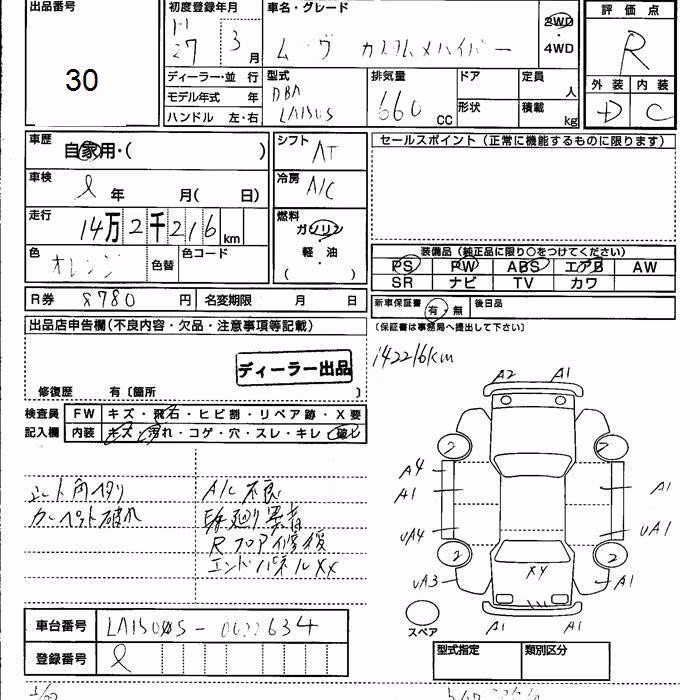 出品番号
30
初度登録年月
H
27年 3月
車名・グレード
ムーヴ カスタムXハイパー
2WD
・
4WD
評価点
R
外装 内装
D C
ディーラー・並行
モデル年式 年
ハンドル 左・右
型式
DBA
LA150S
排気量
660 CC
ドア
形状
定員 人
積載 kg
車歴
自家用・( )
車検
年 月( 日)
走行
14万2千216 km
色
オレンジ
色替
色コード
シフト
AT
冷房
A/C
燃料
ガソリン
軽油
( )
セールスポイント (正常に機能するものに限ります)
装備品 (純正品に限り○をつけてください)
PS PW ABS エアB AW
SR ナビ TV カワ
R券 8780 円 名変期限 月 日
新車保証書 有・無 後日品
(保証書は事務局へ提出して下さい)
出品店申告欄(不良内容・欠品・注意事項等記載)
ディーラー出品
修復歴 有〔箇所 〕
142216km
検査員
記入欄
FW キズ・飛石・ヒビ割・リペア跡・X要
内装 キズ・汚れ・コゲ・穴・スレ・キレ・破レ
シート角スレ
カーペット破れ
A/C不良
Rフロア修復
エンドパネルXX
A2 A1
2 2
A4
A1 A1
UA4 UA1
2 2
UA3 XY A1
A1 A1
スペア
車台番号 LA150S-0022634
登録番号
型式指定 類別区分